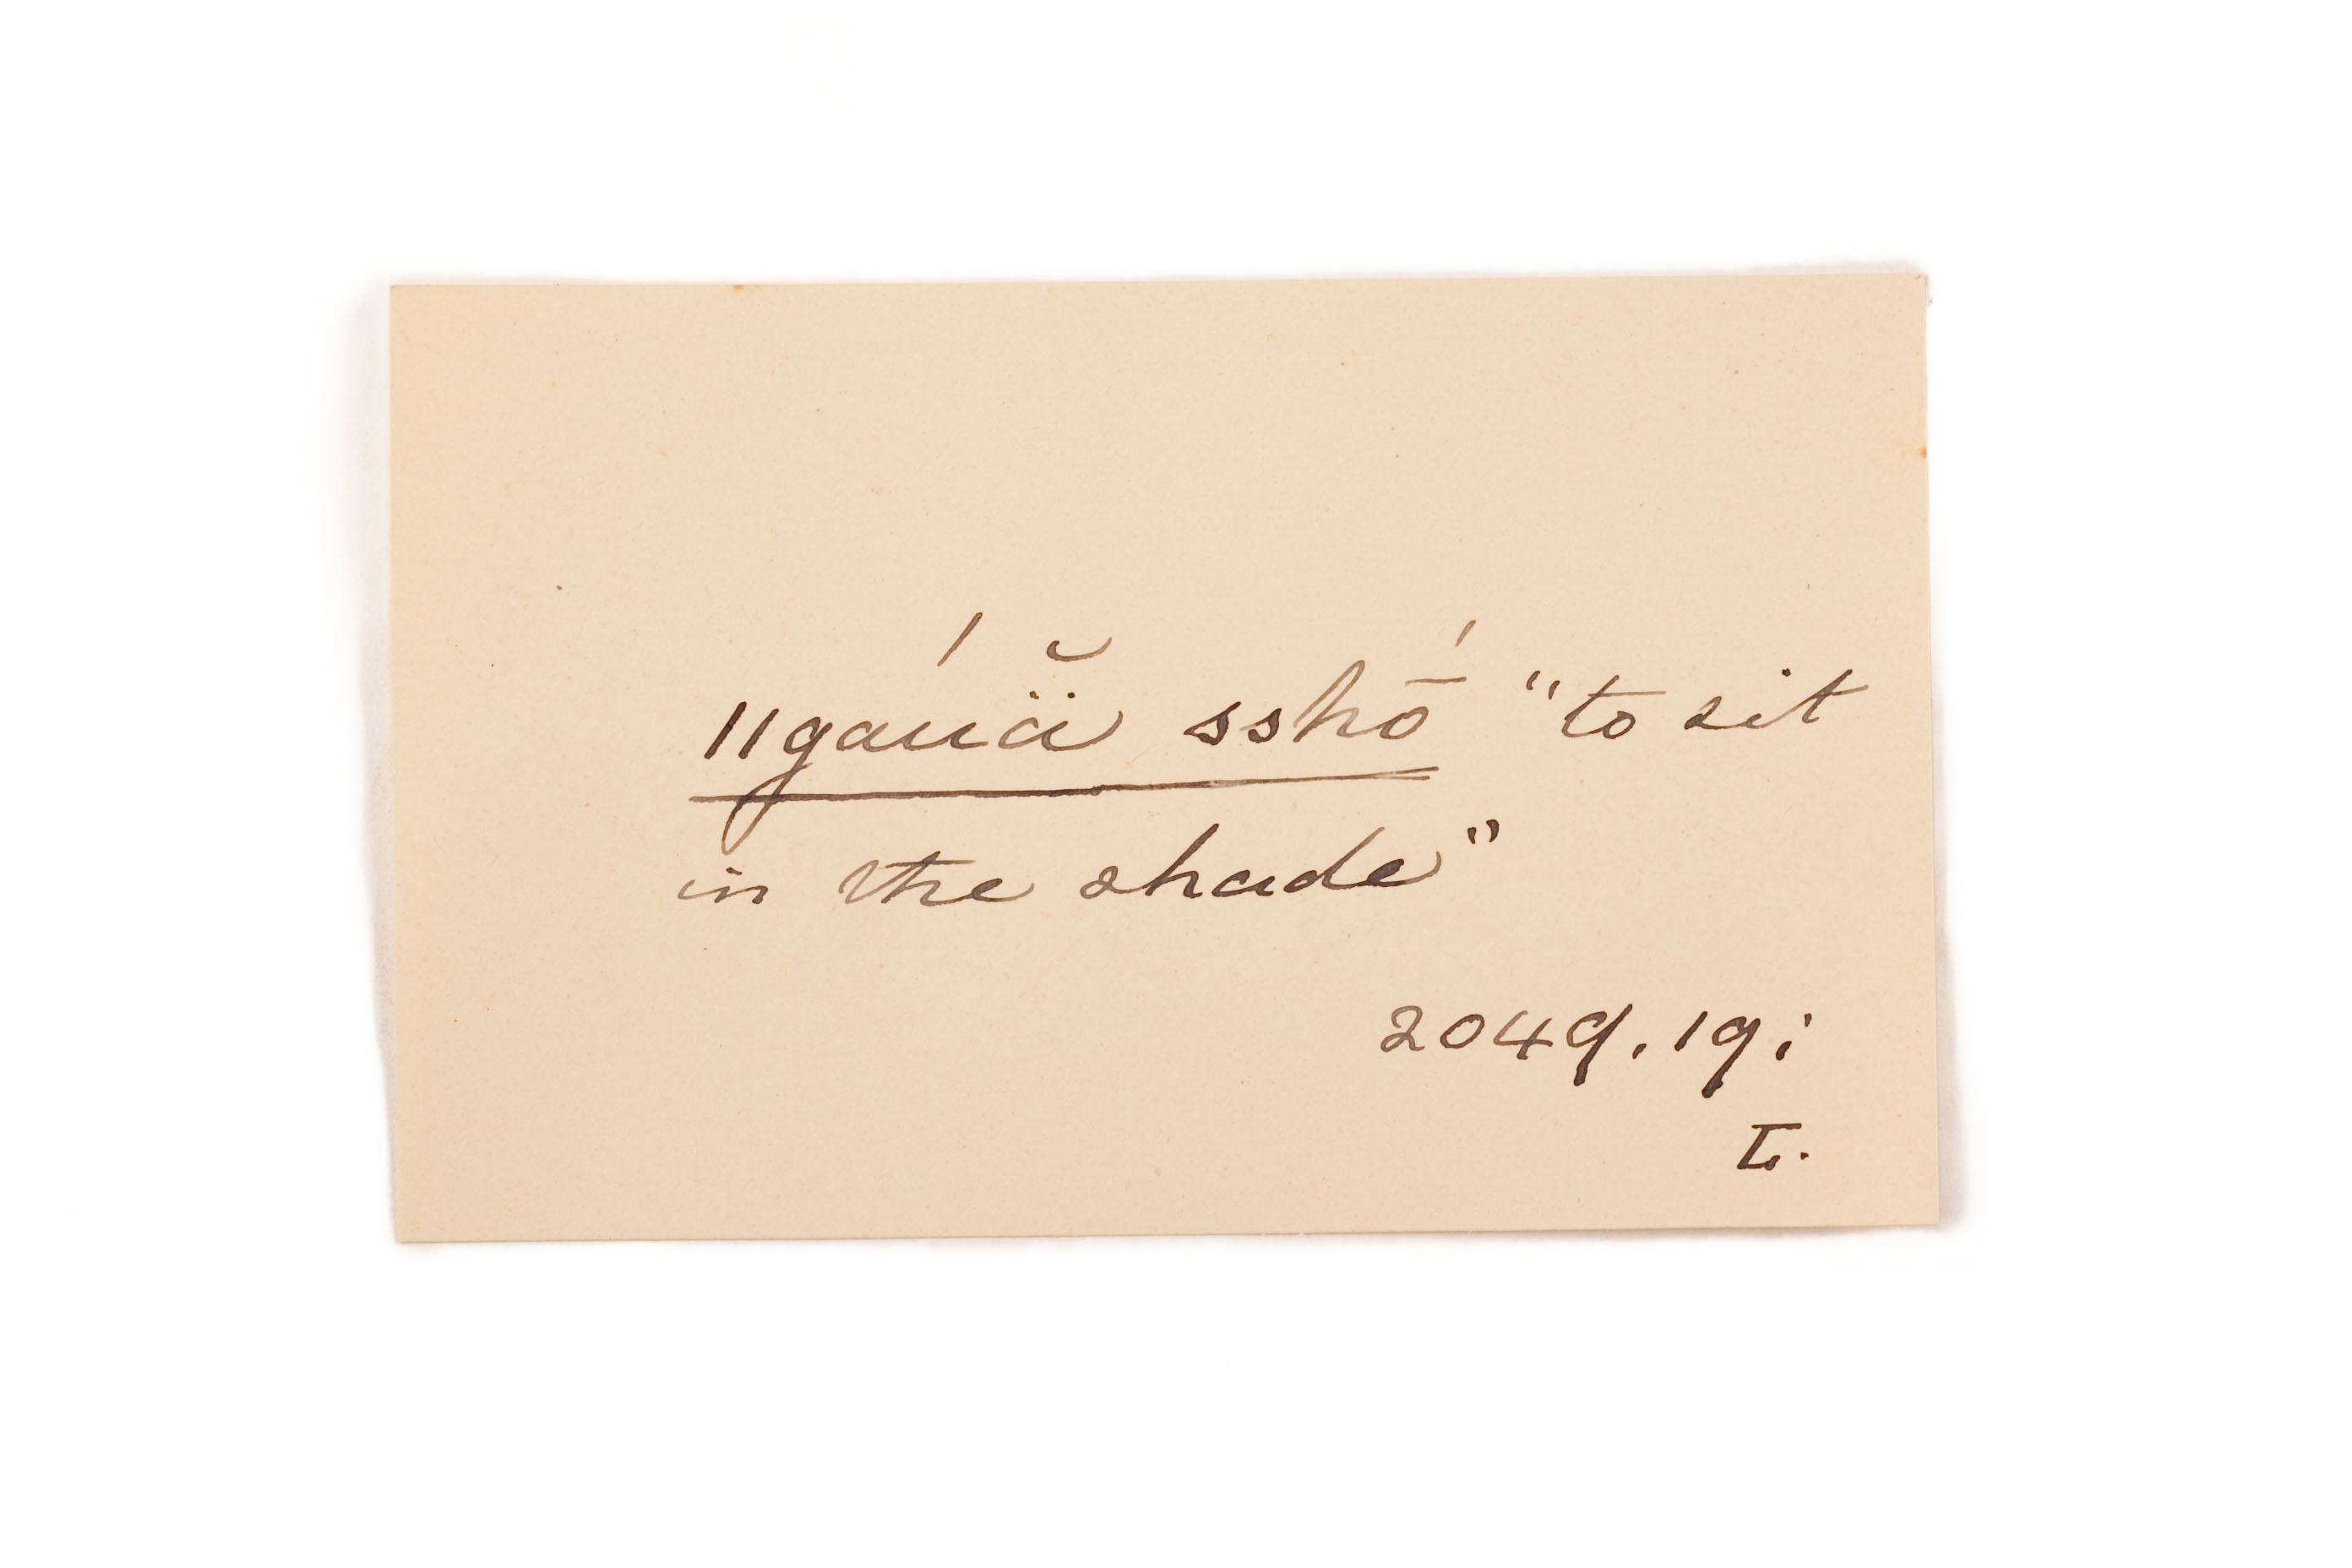 ǁgaúä̆ sshṓ "to sit
in the shade"
2049.19;
L.